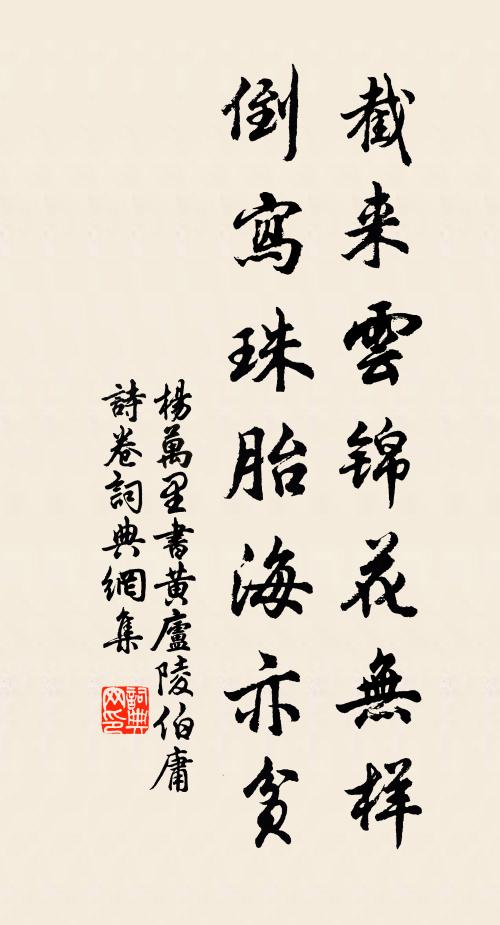 截来雲锦花無样
倒寫珠胎海亦貧
楊萬里書黄廬陵伯庸
詩卷詞典網集
詞典网印